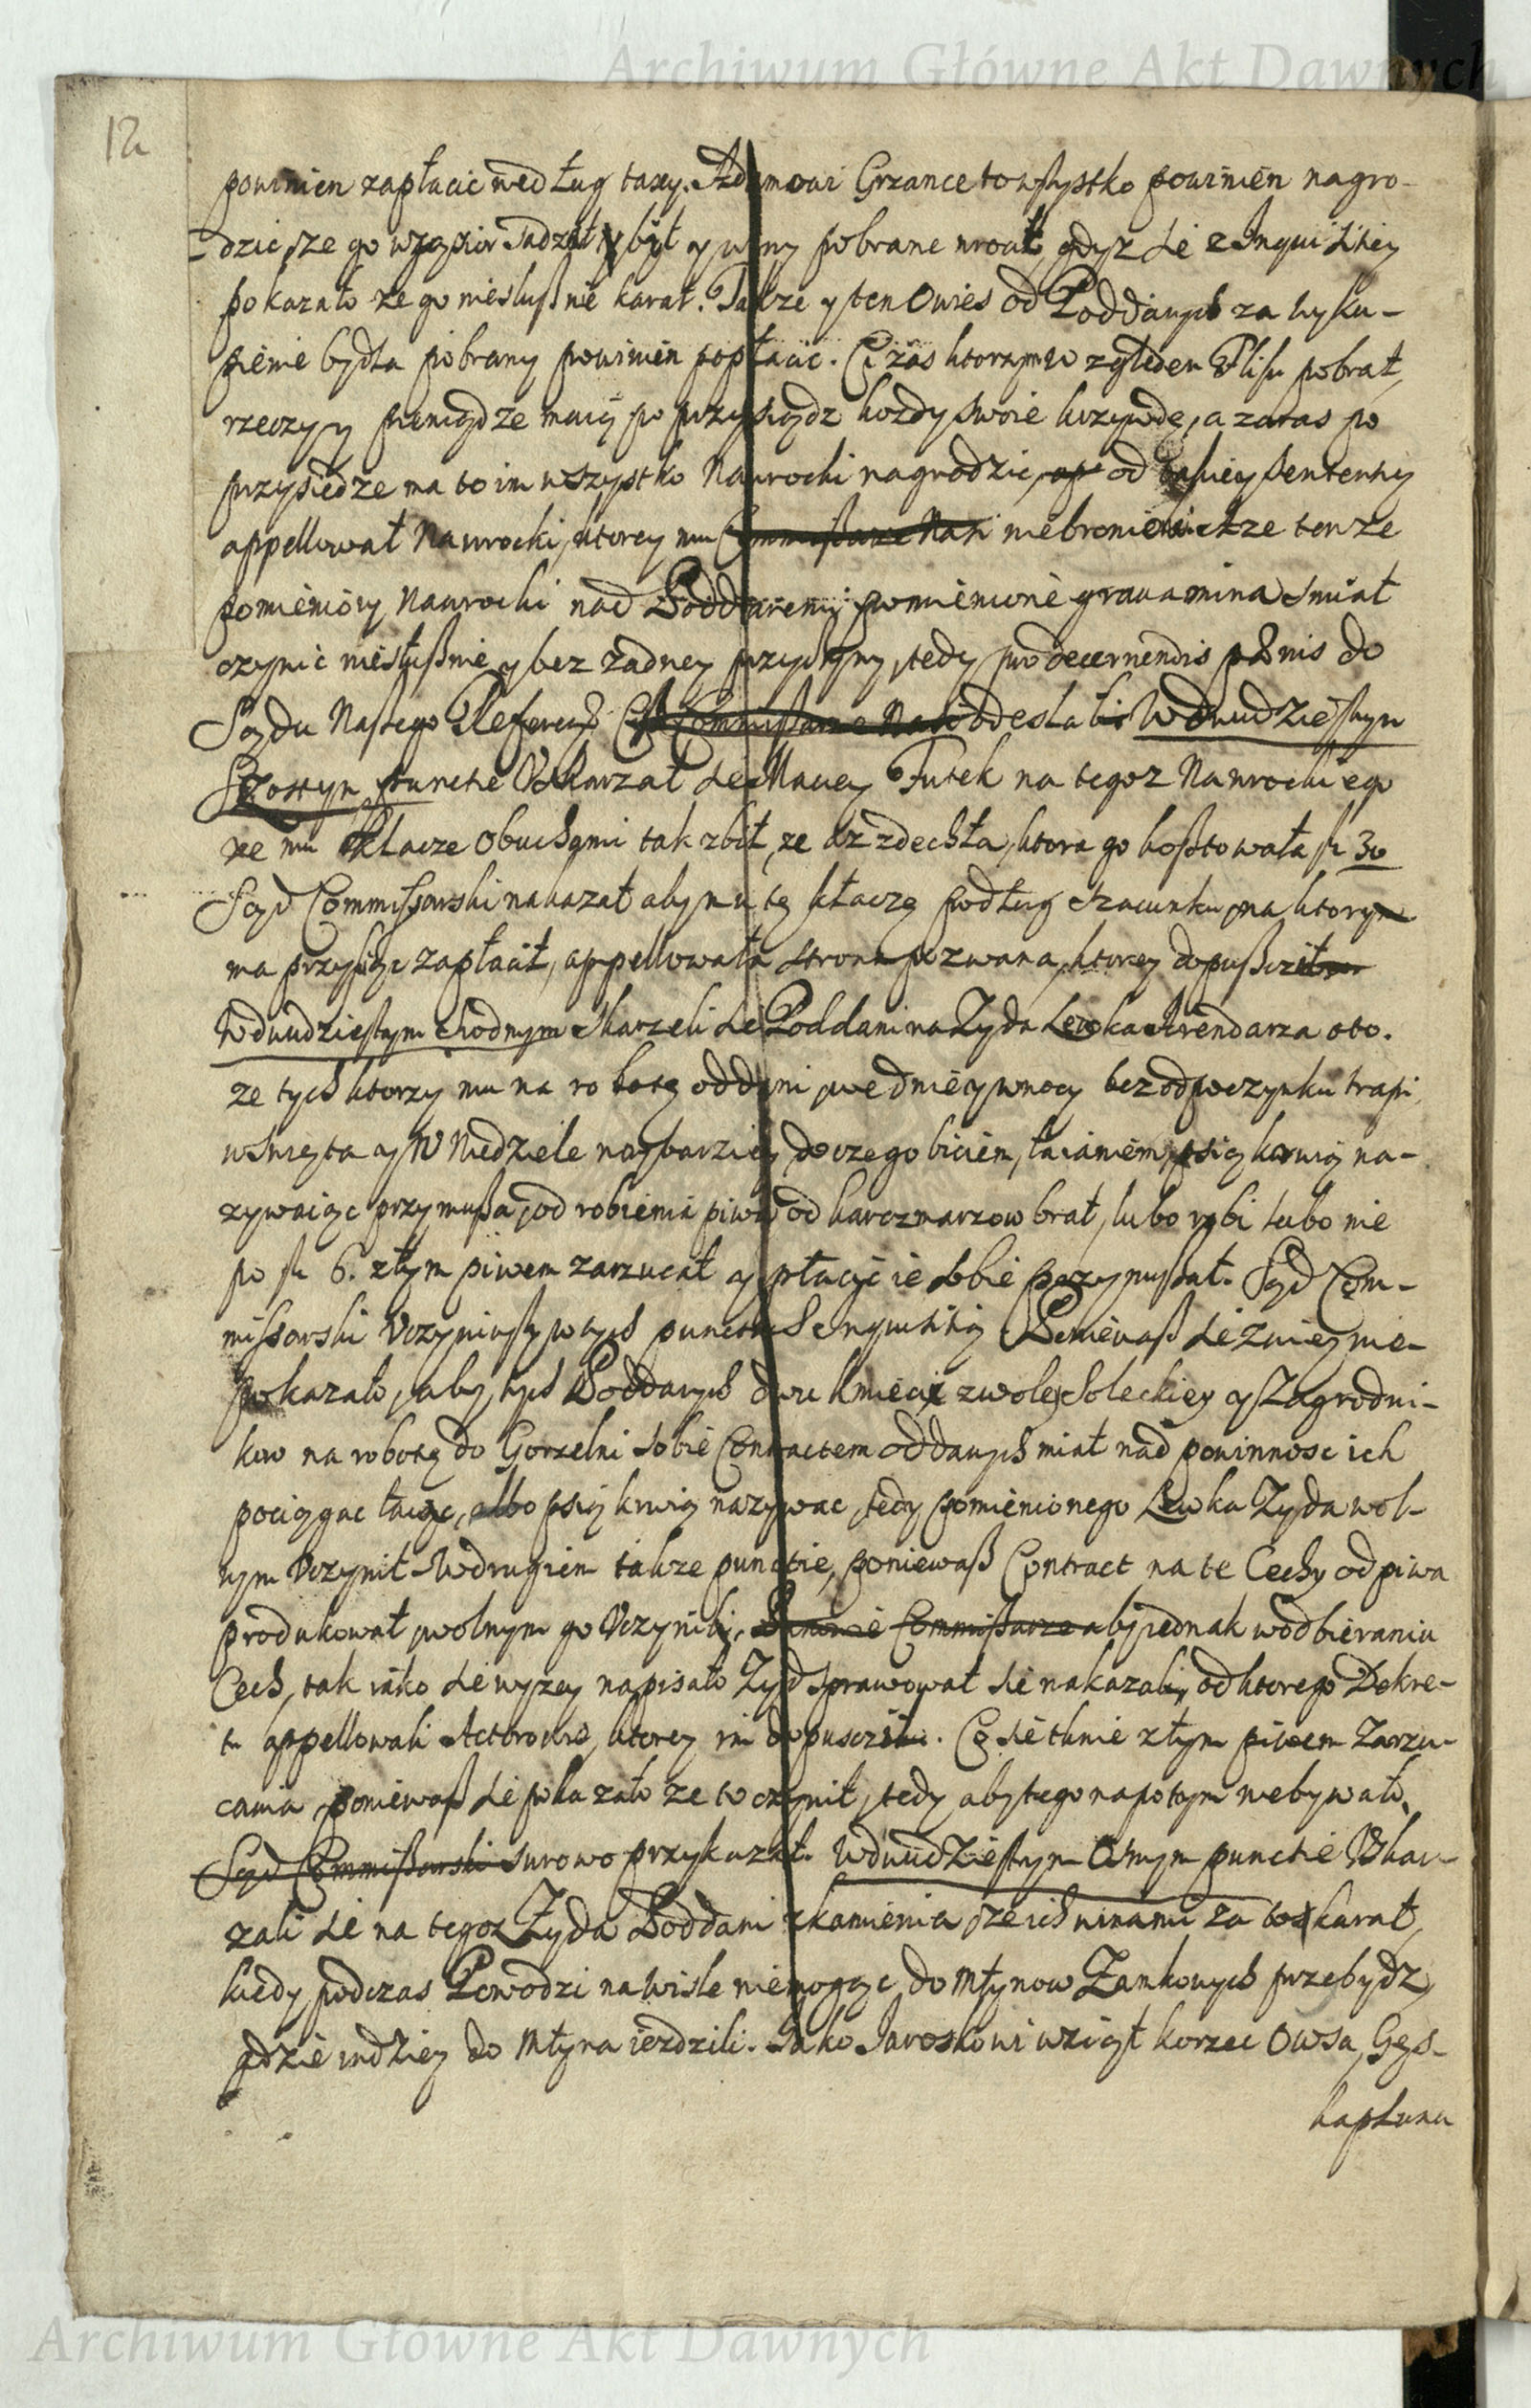 Archiwum Główne Akt Dawnych
12
powinien zapłacic według taxy. Adamowi Grzance to wszystko powinien nagro-
dzic, ze go w wiezieniu sadzał y był y winy pobrane wrocił, gdyz sie z Inquisitiey
pokazało ze go niesłusznie karał. Takze y ten Owies od Poddanych za wyku-
pienie bydła pobrany powinien popłacic. Ci zas ktorym względem Flisu pobrał
rzeczy y pieniądze maią poprzysiądz kozdy swoie krzywdę, a zaras po
przysiedze ma to im wszystko Nawrocki nagrodzic, od takiey sententiey
appellował Nawrocki, ktorey mu Commissarze Nasi niebronieli. A ze tenze
pomieniony Nawrocki nad Poddanemi pomienione gravamina smiał
czynic niesłusznie y bez zadney przyczyny, tedy pro decernendis pœnis do
Sądu Naszego Referend. Commissarze Nasi odesłali. W dwudziestym
Szostym punctie Uskarzał sie Maciey Futek na tegoz Nawrockiego
ze mu Klacze Obuchami tak zbił, ze az zdechła, ktora go kosztowała fl 30
Sąd Commissarski nakazał aby mu tę kłaczę podług szacunku, na ktorym
ma przysiąc zapłacił, appellowała strona pozwana, ktorey dopuscił
W dwudziestym siodmym Skarzeli sie Poddani na Zyda Lewka Arendarza oto.
ze tych ktorzy mu na robotę oddani, we dnie y w nocy bez odpoczynku trapi,
w Swięta y w Niedziele naybarziey, do czego biciem, łaianiem, psią krwią na-
zywaiąc przymusza, od robienia piwa od karczmarzow brał, lubo robi lubo nie
po fl 6. złym piwem zarzucał y płacić ie sobie przymuszał. Sąd Com-
missarski Uczyniwszy w tych punctach Inquisitią Poniewasz sie z niey nie-
pokazało, aby tych Poddanych dwu kmieci z woley Soleckiey y Zagrodni-
kow na robotę do Gorzelni sobie Contractem oddanych miał nad powinnosc ich
pociągac łaiąc, albo psią krwią nazywac, tedy pomienionego Lewka Zyda wol-
nym Uczynił. W drugiem takze punctie, poniewasz Contract na te Cechy od piwa
produkował, wolnym go Uczynili, Panowie Commissarze aby iednak w odbieraniu
Cech, tak iako sie wyzey napisało Zyd sprawował sie nakazali, od ktorego Dekre-
tu appellowali Actorowie, ktorey im dopuscili. Co sie tknie złym piwem zarzu-
cania, poniewasz sie pokazało ze to czynił, tedy aby tego napotym niebywało,
Sąd Commissarski surowo przykazał. W dwudziestym Osmym punctie Uskar-
zali sie na tegoz Zyda Poddani z kamienia, ze ich winami za to karał,
kiedy podczas Powodzi na Wisle niemogąc do Młynow Zamkowych przebydz,
gdzie indziey do Młyna iezdzili. Iako Iaroskowi wziął korzec Owsa, Gęs-
kapłuna
Archiwum Główne Akt Dawnych